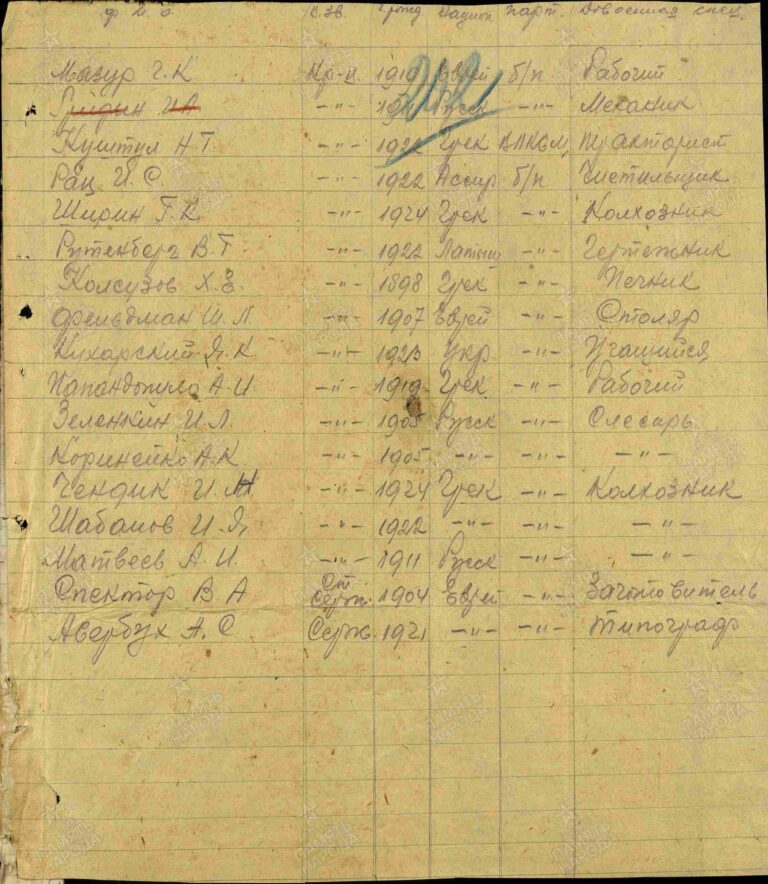 Ф И О В.зв. Гр.рожд Национ парт. Довоенная спец.
Мазур Г. К Кр-ц 1919 Еврей б/п Рабочий
Гридин И А -"- Русск -"- Механик
Куштул Н.Т. -"- 1922 Грек ВЛКСМ Тракторист
Рац И. С. -"- 1922 Ассир б/п Чистильщик
Ширин Г. К. -"- 1924 Грек -"- Колхозник
Рутенберг В. Т -"- 1922 Латыш -"- Чертежник
Колсузов Х. Е. -"- 1898 Грек -"- Печник
Фельдман Ш. Л. -"- 1907 Еврей -"- Столяр
Кухарский Я. К -"- 1923 Укр -"- Учащийся
Папандопуло А. И -"- 1919 Грек -"- Рабочий
Зеленкин И. Л. -"- 1905 Русск -"- Слесарь
Коринейко А. К -"- 1905 -"- -"- -"-
Чендик И. -"- 1924 Грек -"- Колхозник
Шабанов И. Я, -"- 1922 -"- -"- -"-
Матвеев А. И -"- 1911 Русск -"- -"-
Спектор В. А Ст серж. 1904 Еврей -"- Заготовитель
Авербух А. С Серж. 1921 -"- -"- типограф
242
ПАМЯТЬ НАРОДА